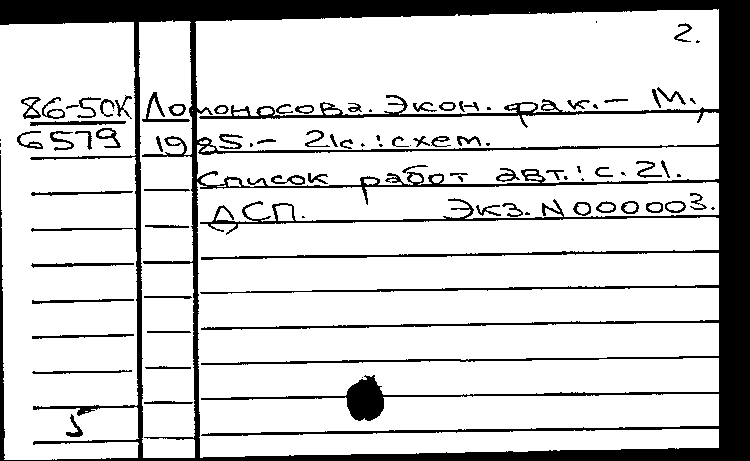 2.
86-5СК Ломоносова. Экон. фак. – М.,
6579 1985. – 21с. : схем.
Список работ авт.: с. 21.
ДСП. Экз. N 000003.
5